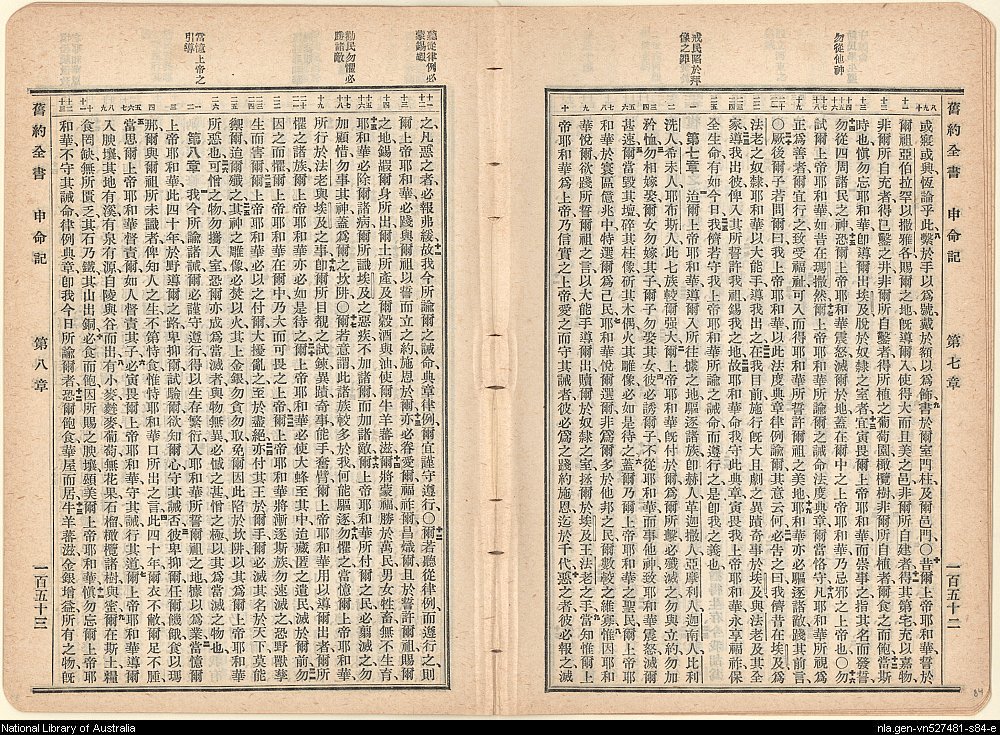 勿從他神
戒民陷於拜
像之罪
舊約全書 申命記 第七章 一百五十二
或寢或興恆論乎此繫於手以爲號戴於額以爲飾書於爾室門柱及爾邑門〇昔爾上帝耶和華誓於
爾祖亞伯拉罕以撒雅各賜爾之地旣導爾入使得大而且美之邑非爾所自建者得其第宅充以嘉物
非爾所自充者得已鑿之井非爾所自鑿者得所植之葡萄園橄欖樹非爾所自植者爾食之而飽當斯
時也愼勿忘耶和華卽導爾出埃及脫於奴隸之室者宜寅畏爾上帝耶和華而崇事之指其名而發誓
勿從四周諸民之神恐爾上帝耶和華震怒滅爾於地蓋在爾中之上帝耶和華乃忌邪之上帝也〇勿
試爾上帝耶和華如昔在瑪撒然爾上帝耶和華所諭爾之誡命法度典章爾當恪守凡耶和華所視爲
正爲善者爾宜行之致受福祉可入而得耶和華所誓許爾祖之美地耶和華亦必驅逐諸敵踐其前言
〇厥後爾子若問爾曰我上帝耶和華以此法度典章律例諭爾其意云何必告之曰我儕昔在埃及爲
法老之奴隸耶和華以大能手導我出之在我目前施行旣大且劇之異蹟奇事於埃及與法老及其全
家導我出彼俾入其所誓許我祖錫我之地故耶和華命我守此典章寅畏我上帝耶和華永享福祚保
全生命有如今日我儕若守我上帝耶和華所諭之誡命而遵行之是卽我之義也
第七章 爾上帝耶和華導爾入所往據之地驅逐諸族卽赫人革迦撒人亞摩利人迦南人比利
洗人希未人耶布斯人此七族較爾強大爾上帝耶和華付之爾手爾擊之時宜盡滅之勿與立約勿加
矜恤勿相嫁娶爾女勿嫁其子爾子勿娶其女彼必誘爾子不從耶和華而事他神致耶和華震怒滅爾
甚速爾當毀其壇碎其柱像斫其木偶火其雕像必如是待之蓋爾乃爾上帝耶和華之聖民爾上帝耶
和華於寰區億兆中特選爾爲己民耶和華悅爾選爾非因爾多於他邦之民爾數較之維寡惟因耶和
華悅爾欲踐所誓爾祖之言以大能手導爾出贖爾於奴隸之室拯爾於埃及王法老之手當知惟爾上
帝耶和華爲上帝乃信實之上帝愛之而守其誡者彼必爲之踐約施恩迄於千代惡之者彼必報之滅
84
聽從律例必
蒙錫嘏
勸民勿懼必
勝諸敵
當憶上帝之
引導
之凡惡之者必報弗緩故我今所諭爾之誡命典章律例爾宜謹守遵行〇爾若聽從律例而遵行之則
爾上帝耶和華必踐與爾祖以誓而立之約施恩於爾亦必眷愛爾福祚爾昌熾爾且於誓許爾祖賜爾
之地錫嘏爾身所出爾土所產及爾穀酒與油使爾牛羊蕃滋爾將蒙福勝於萬民男女牲畜無不生育
耶和華必除爾諸病爾所識埃及之惡疾不加諸爾而加諸敵爾上帝耶和華所付爾之民必翦滅之勿
加顧惜勿事其神蓋爲爾之坎阱〇爾若意謂此諸族較多於我何能驅逐勿懼之當憶爾上帝耶和華
所行於法老與埃及之事卽爾所目覩之試鍊異蹟奇事能手奮臂爾上帝耶和華用以導爾出者爾所
懼之諸族爾上帝耶和華亦必如是待之爾上帝耶和華必使大蜂至其中追滅匿之遺民於爾前勿
因之而懼爾上帝耶和華在爾中乃大而可畏之上帝爾上帝耶和華將漸逐斯族勿速滅之恐野獸孳
生而害爾爾上帝耶和華必以之付爾大擾亂之至於盡絕亦付其王於爾手爾必滅其名於天下莫能
禦爾迨爾殲之其神之雕像必焚以火其上金銀勿貪勿取免爾因此陷於坎阱以其爲爾上帝耶和華
所惡也可憎之物勿攜入室恐爾亦成爲當滅者與物無異必憾之甚憎之極以其爲當滅之物也
第八章 我今所諭諸誡爾必謹守遵行得以生存繁衍入耶和華所誓爾祖之地據以爲業當憶爾
上帝耶和華此四十年於野導爾之路卑抑爾試驗爾欲知爾心守其誡否彼卑抑爾任爾饑餓食以瑪
那爾與爾祖所未識者俾知人之生不第恃食惟恃耶和華口所出之言此四十年爾衣不敝爾足不腫
當思爾上帝耶和華督責爾如人督責其子必寅畏爾上帝耶和華守其誡行其道爾上帝耶和華導爾
入腴壤其地有溪有泉有源自陵與谷而出有小麥麰麥葡萄無花果石榴橄欖諸樹與蜜爾在斯土糧
食罔缺無所匱乏其石乃鐵其山出銅必食而飽因所賜之腴壤頌美爾上帝耶和華愼勿忘爾上帝耶
和華不守其誡命律例典章卽我今日所諭爾者恐爾飽食建華屋而居牛羊蕃滋金銀增益所有之物旣
舊約全書 申命記 第八章 一百五十三
National Library of Australia
nla.gen-vn527481-s84-e